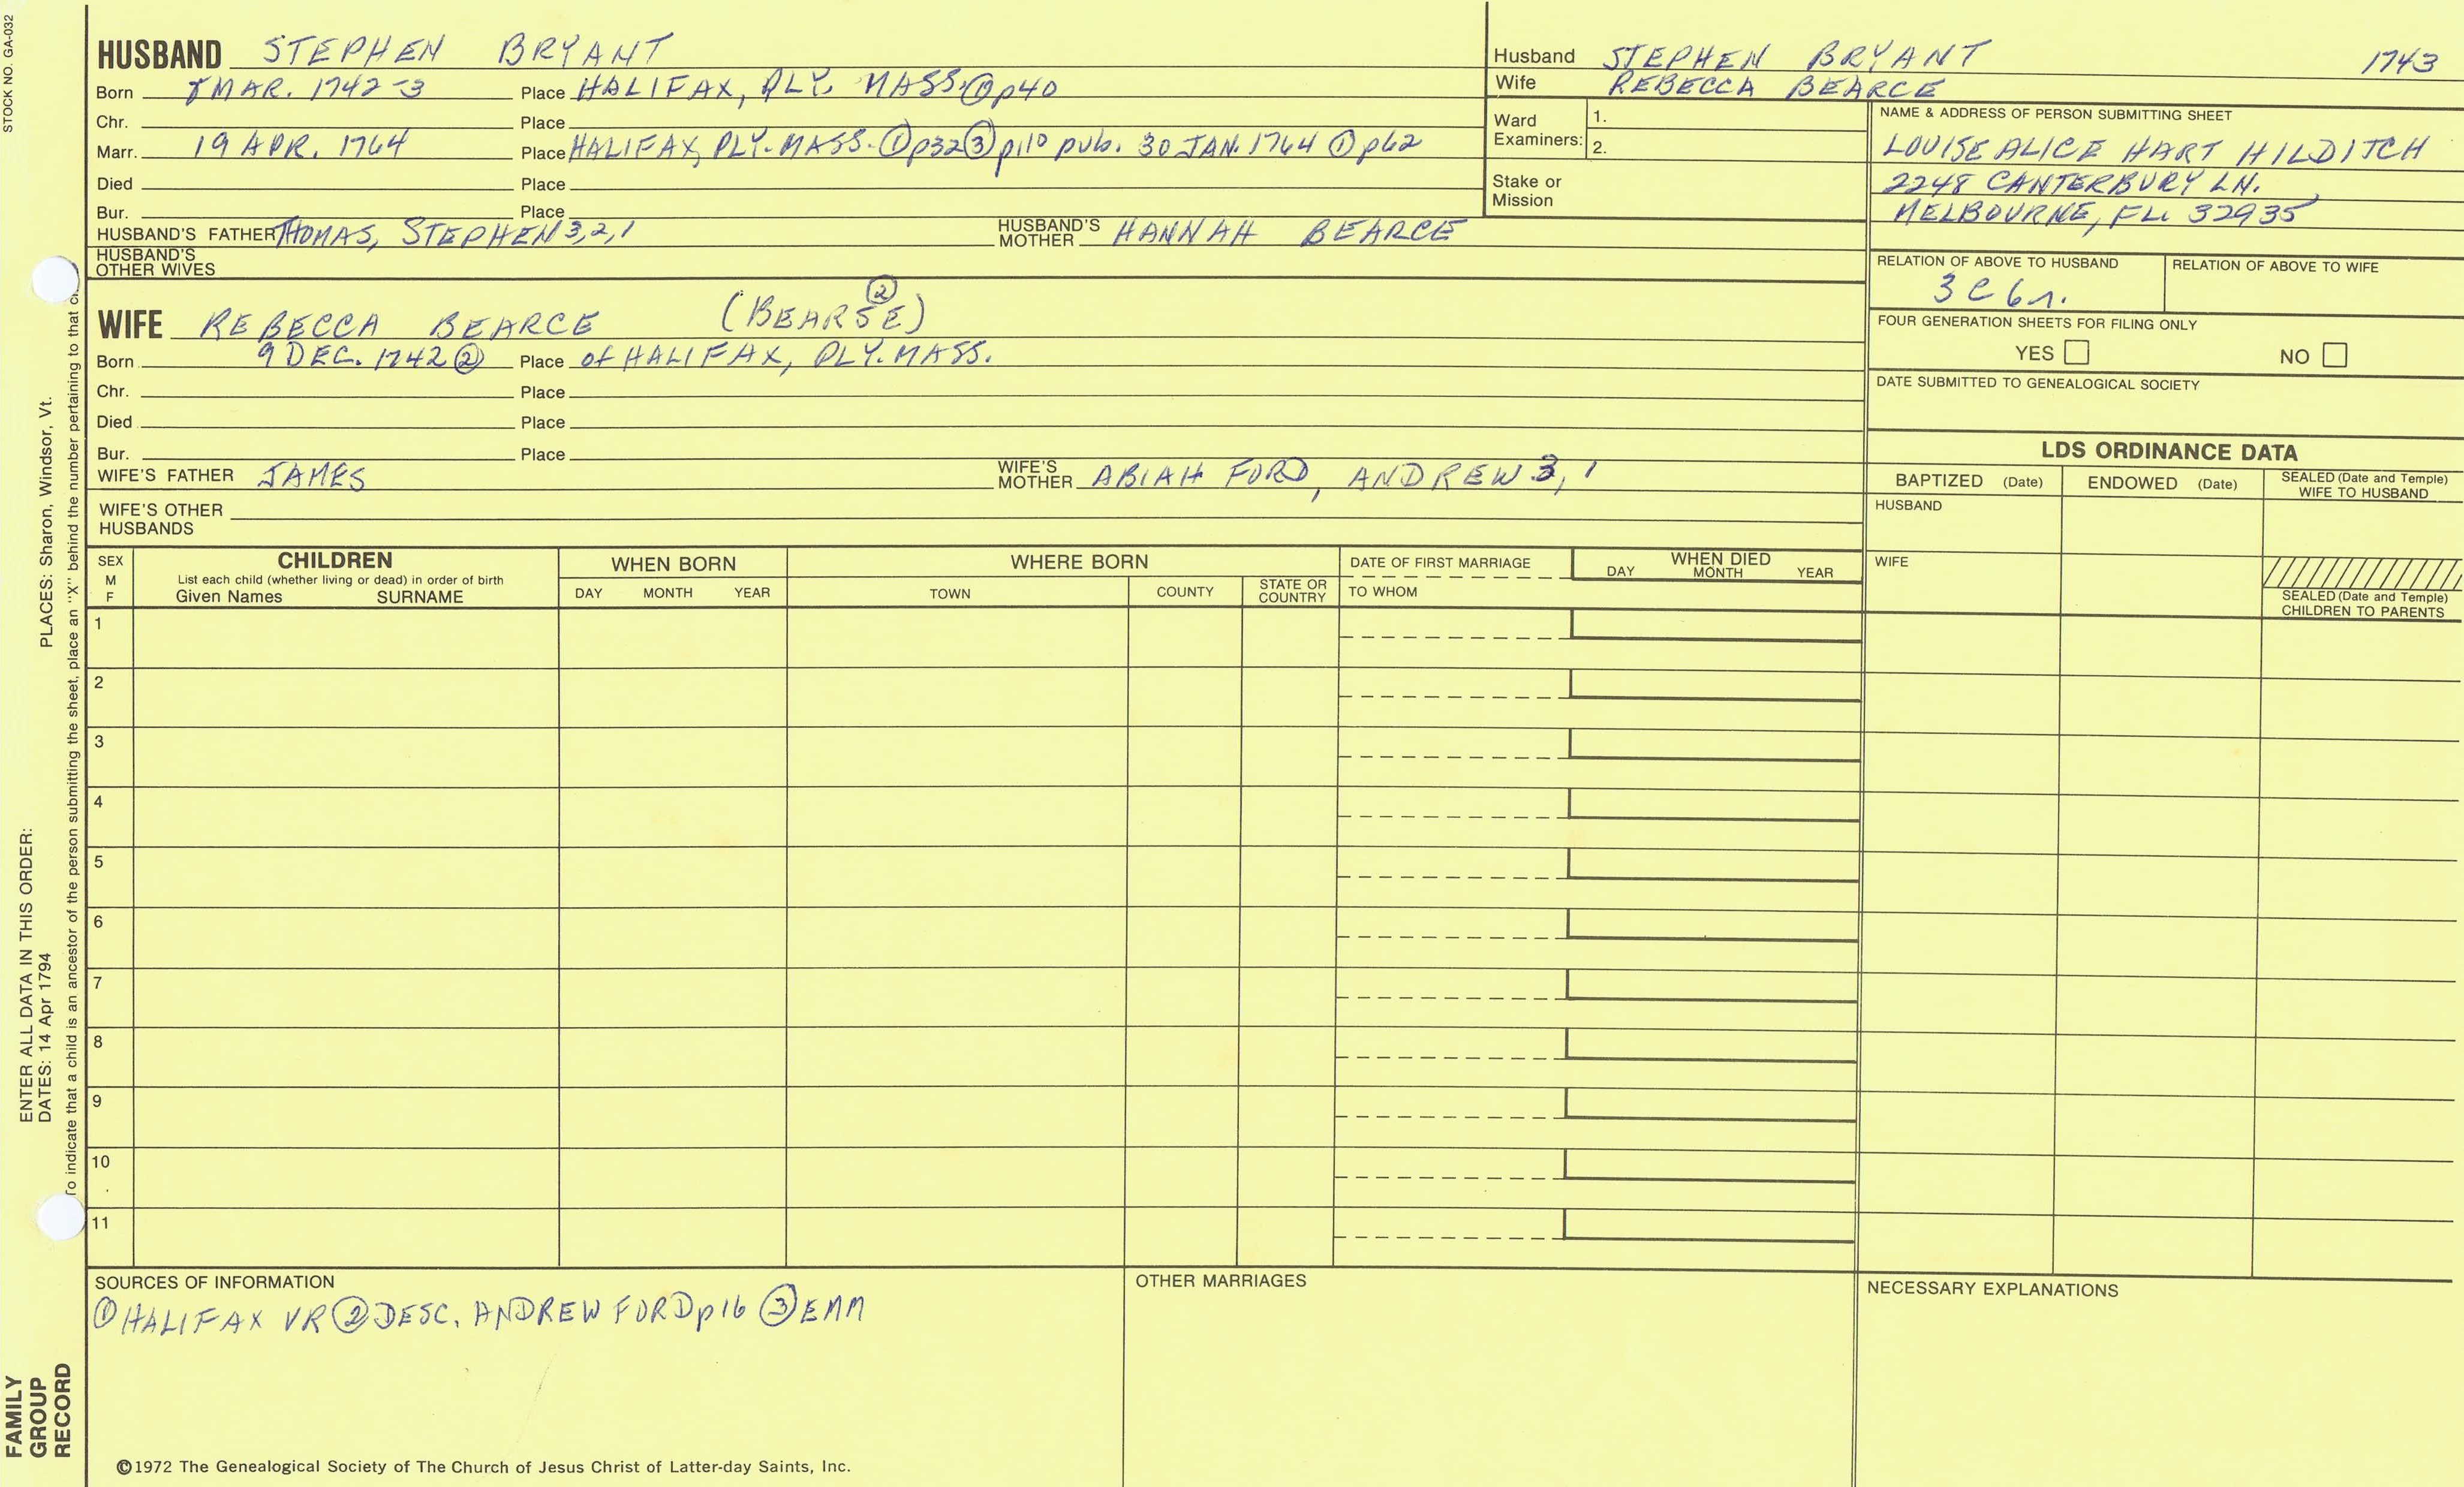 STOCK NO. GA-032
HUSBAND STEPHEN BRYANT
Born 8 MAR. 1742-3 Place HALIFAX, PLY. MASS. ① p40
Chr. Place
Marr. 19 APR. 1764 Place HALIFAX, PLY. MASS. ① p32 ③ p110 pub. 30 JAN. 1764 ① p62
Died Place
Bur. Place
HUSBAND'S FATHER THOMAS, STEPHEN 3,2,1 HUSBAND'S MOTHER HANNAH BEARCE
HUSBAND'S OTHER WIVES
WIFE REBECCA BEARCE (BEARSE) ②
Born 9 DEC. 1742 ② Place of HALIFAX, PLY. MASS.
Chr. Place
Died Place
Bur. Place
WIFE'S FATHER JAMES WIFE'S MOTHER ABIAH FORD, ANDREW 3, 1
WIFE'S OTHER HUSBANDS
Husband STEPHEN BRYANT 1743
Wife REBECCA BEARCE
Ward Examiners: 1.
2.
Stake or Mission
NAME & ADDRESS OF PERSON SUBMITTING SHEET
LOUISE ALICE HART HILDITCH
2248 CANTERBURY LN.
MELBOURNE, FL. 32935
RELATION OF ABOVE TO HUSBAND RELATION OF ABOVE TO WIFE
3 C 6 r.
FOUR GENERATION SHEETS FOR FILING ONLY
YES NO
DATE SUBMITTED TO GENEALOGICAL SOCIETY
LDS ORDINANCE DATA
BAPTIZED (Date) ENDOWED (Date) SEALED (Date and Temple) WIFE TO HUSBAND
HUSBAND
WIFE
SEALED (Date and Temple) CHILDREN TO PARENTS
SEX M F
CHILDREN
List each child (whether living or dead) in order of birth
Given Names SURNAME
WHEN BORN
DAY MONTH YEAR
WHERE BORN
TOWN COUNTY STATE OR COUNTRY
DATE OF FIRST MARRIAGE
TO WHOM
WHEN DIED
DAY MONTH YEAR
1
2
3
4
5
6
7
8
9
10
11
SOURCES OF INFORMATION
① HALIFAX VR ② DESC. ANDREW FORD p16 ③ EMM
OTHER MARRIAGES
NECESSARY EXPLANATIONS
©1972 The Genealogical Society of The Church of Jesus Christ of Latter-day Saints, Inc.
FAMILY GROUP RECORD
ENTER ALL DATA IN THIS ORDER:
DATES: 14 Apr 1794 PLACES: Sharon, Windsor, Vt.
To indicate that a child is an ancestor of the person submitting the sheet, place an "X" behind the number pertaining to that